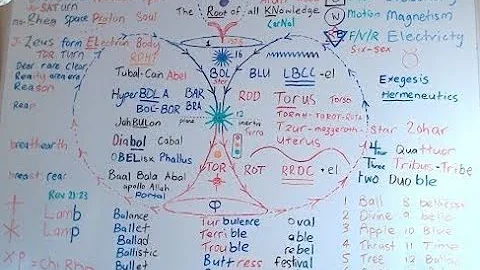 SATURN
The √ Root of all KNowledge
CarNal
Rhea Space Proton Soul
Motion Magnetism
J- Zeus form ELectron Body
F/V/R Electricty
TOR Turn
RPHT
Sir-sex
Dear rare Clear
Reality area era
Reason
Reap
Tubal-Cain Abel
BOL
BLU
LBCC-el
HyperBDLA BAR
BOL-BOR BRA
ROD
Torus
Torso
TORAH-TAROT-ROTA
Exegesis
Hermeneutics
JahBULon
Tzur-mazzeroth-star Zohar
uterus
Diabol Cabal
OBELisk Phallus
Baal Bola Abol
apollo Allah
Portal
TOR
ROT
RRDC + el
4 Four Quattuor
Three Tribus-Tribe
two Duo ble
breathearth
breast rear
Rev 21:23
Lamb
Lamp
XP = Chi Rho
φ
Balance
Ballet
Ballad
Ballistic
Bullet
Turbulence
Terrible
Trouble
Buttress
oval
able
rebel
festival
1 Ball 8
2 Divine 9
3 Apple 10 Blue
4 Thrust 11 Time
5 Table 12